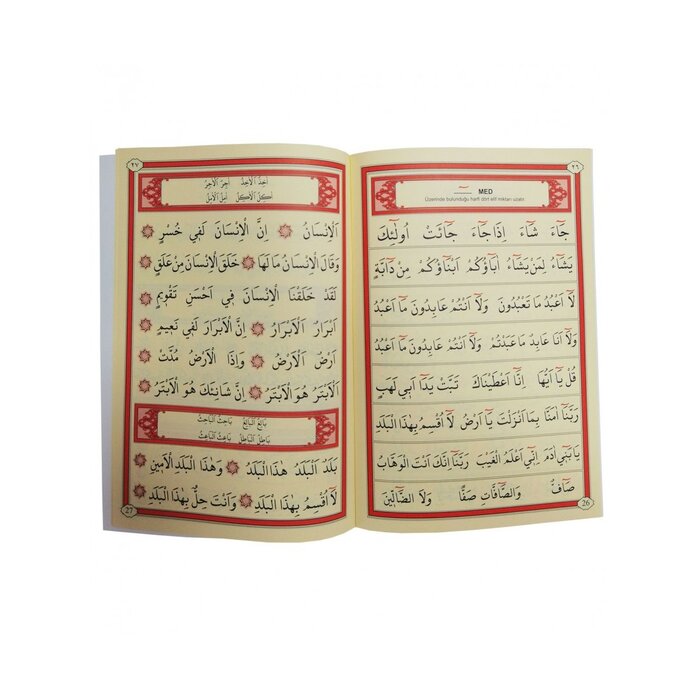 ٢٦
MED
Üzerinde bulunduğu harfi dört elif miktarı uzatır.
جَٓاءَ شَٓاءَ اِذَاجَٓاءَ جَٓائَتْ اُولٰٓئِكَ
يَشَٓاءُ لِمَنْ يَشَٓاءُ اٰبَٓاؤُكُمْ اَبْنَٓاؤُكُمْ مِنْ دَٓابَّةٍ
لَٓا اَعْبُدُ مَا تَعْبُدُونَ وَلَٓا اَنْتُمْ عَابِدُونَ مَٓا اَعْبُدُ
وَلَٓا اَنَا عَابِدٌ مَا عَبَدْتُمْ وَلَٓا اَنْتُمْ عَابِدُونَ مَٓا اَعْبُدُ
قُلْ يَٓا اَيُّهَا اِنَّٓا اَعْطَيْنَاكَ تَبَّتْ يَدَٓا اَبِي لَهَبٍ
رَبَّنَٓا اٰمَنَّا بِمَٓا اَنْزَلْتَ يَٓا اَرْضُ لَٓا اُقْسِمُ بِهٰذَا الْبَلَدِ
يَا بَنِٓي اٰدَمَ اِنِّٓي اَعْلَمُ الْغَيْبَ رَبَّنَٓا اِنَّكَ اَنْتَ الْوَهَّابُ
صَٓافٌّ وَالصَّٓافَّاتِ صَفًّا وَلَا الضَّٓالِّينَ
26
٢٧
اَلْاِنْسَانُ اِنَّ الْاِنْسَانَ لَفِي خُسْرٍ
وَقَالَ الْاِنْسَانُ مَا لَهَا خَلَقَ الْاِنْسَانَ مِنْ عَلَقٍ
لَقَدْ خَلَقْنَا الْاِنْسَانَ فِٓي اَحْسَنِ تَقْوِيمٍ
اَبْرَارُ اَلْاَبْرَارُ اِنَّ الْاَبْرَارَ لَفِي نَعِيمٍ
اَرْضُ اَلْاَرْضُ وَاِذَا الْاَرْضُ مُدَّتْ
اَلْاَبْتَرُ هُوَ الْاَبْتَرُ اِنَّ شَانِئَكَ هُوَ الْاَبْتَرُ
بَلَدُ اَلْبَلَدُ هٰذَا الْبَلَدُ وَهٰذَا الْبَلَدِ الْاَمِينِ
لَٓا اُقْسِمُ بِهٰذَا الْبَلَدِ وَاَنْتَ حِلٌّ بِهٰذَا الْبَلَدِ
27